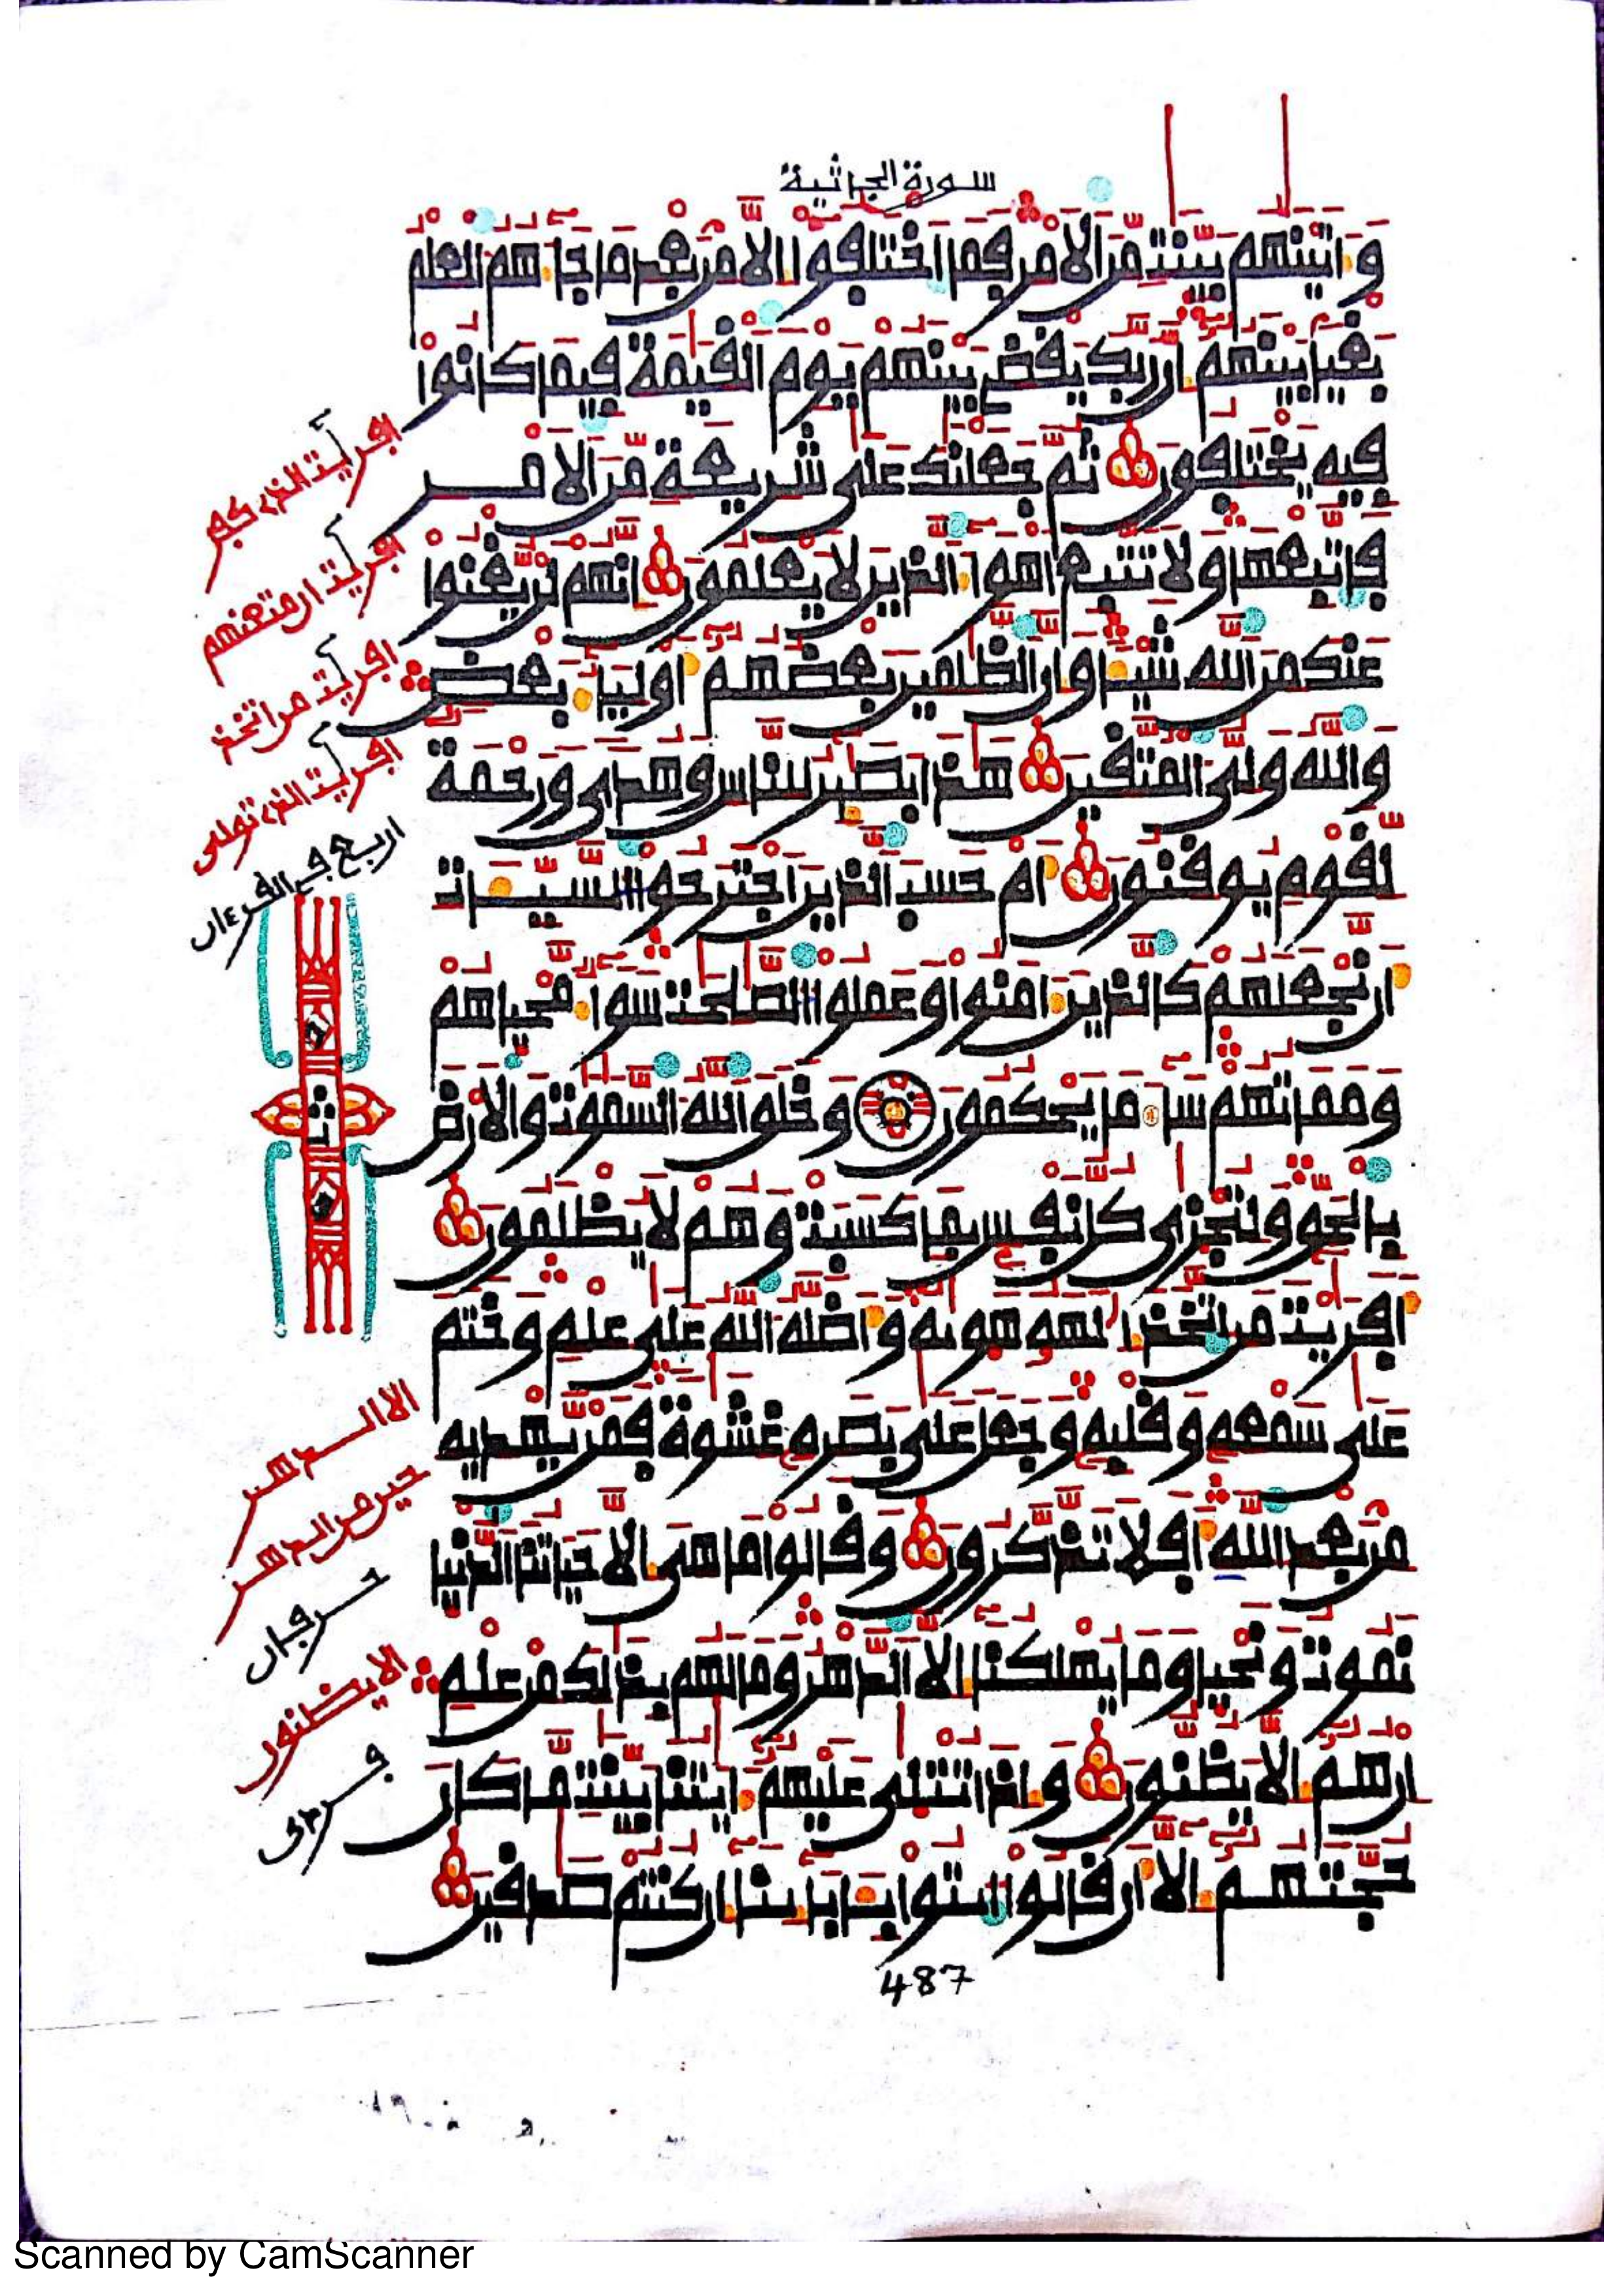 سورة الجاثية
وَاتينهم بينت من الامر فما اختلفوا الا من بعد ما جاهم العلم
بغيا بينهم ان ربك يقض بينهم يوم القيمة فيما كانوا
فيه يختلفون ثم جعلنك على شريعة من الامر
فاتبعها ولا تتبع اهوا الذين لا يعلمون انهم لن يغنوا
عنك من الله شيا وان الظلمين بعضهم اوليا بعض
والله ولي المتقين هذا بصير للناس وهدى ورحمة
لقوم يوقنون ام حسب الذين اجترحوا السيات
ان نجعلهم كالذين امنوا وعملوا الصلحت سوا محياهم
ومماتهم سا ما يحكمون وخلق الله السموت والارض
بالحق ولتجزى كل نفس بما كسبت وهم لا يظلمون
افريت من اتخذ الهه هويه واضله الله على علم وختم
على سمعه وقلبه وجعل على بصره غشوة فمن يهديه
من بعد الله افلا تذكرون وقالوا ما هي الا حياتنا الدنيا
نموت ونحيا وما يهلكنا الا الدهر وما لهم بذلك من علم
ان هم الا يظنون واذا تتلى عليهم ايتنا بينت ما كان
حجتهم الا ان قالوا ايتوا بابائنا ان كنتم صدقين
افريت الذي كفر
افريت ان متعنهم
افريت من اتخذ
افريت الذي تولى
اربع في القرءان
ثمن
الا الدهر
حين من الدهر
حرفان
الا يظنون
487
Scanned by CamScanner